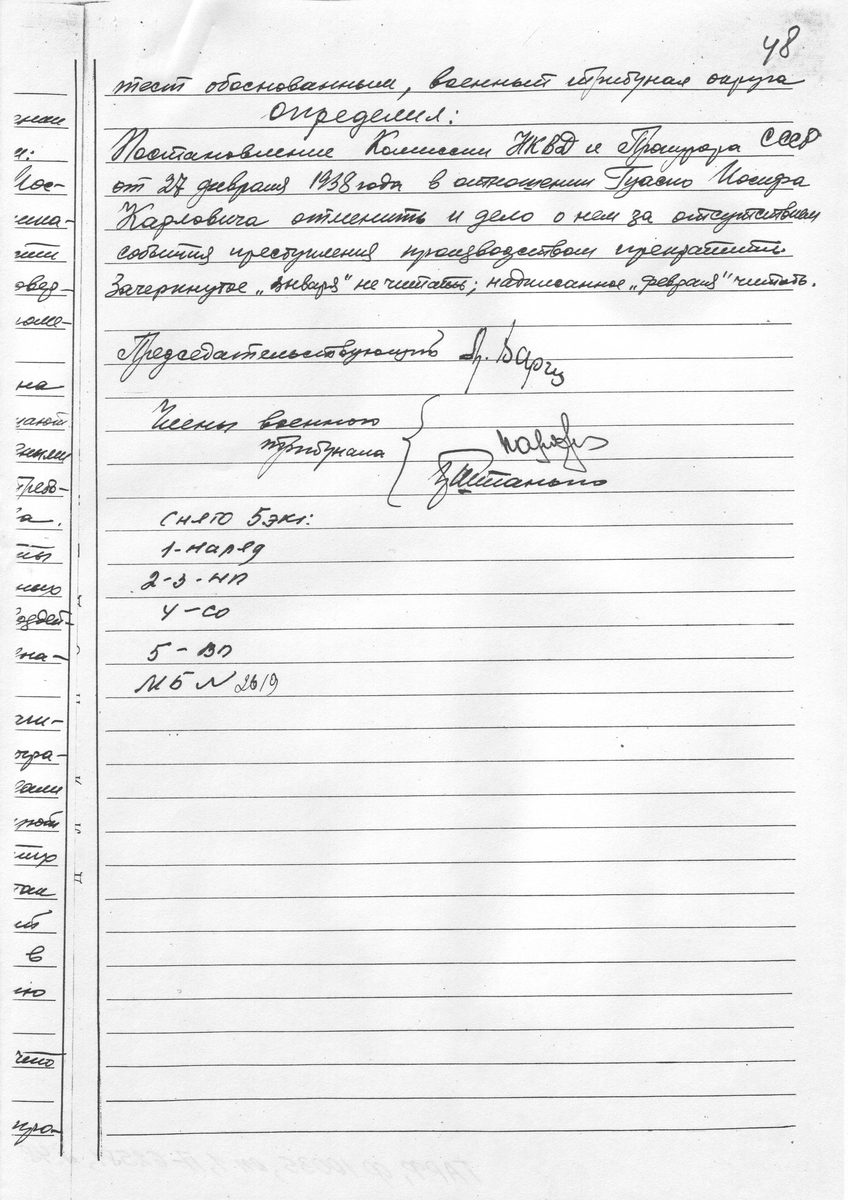 48
тест обоснованным, военный трибунал округа
определил:
Постановление Комиссии НКВД и Прокурора СССР
от 27 февраля 1938 года в отношении Гуаспо Иосифа
Карловича отменить и дело о нем за отсутствием
события преступления производством прекратить.
Зачеркнутое „января" не читать; надписанное „февраля" читать.
Председательствующий
Члены военного
трибунала
Снято 5 экз:
1-наряд
2-3-нп
4-со
5-вп
МБ N 2619
енаи
и:
Иос-
овед-
на
ным
а.
ных
ена-
чи-
тра-
так
в
ию
чено
про-